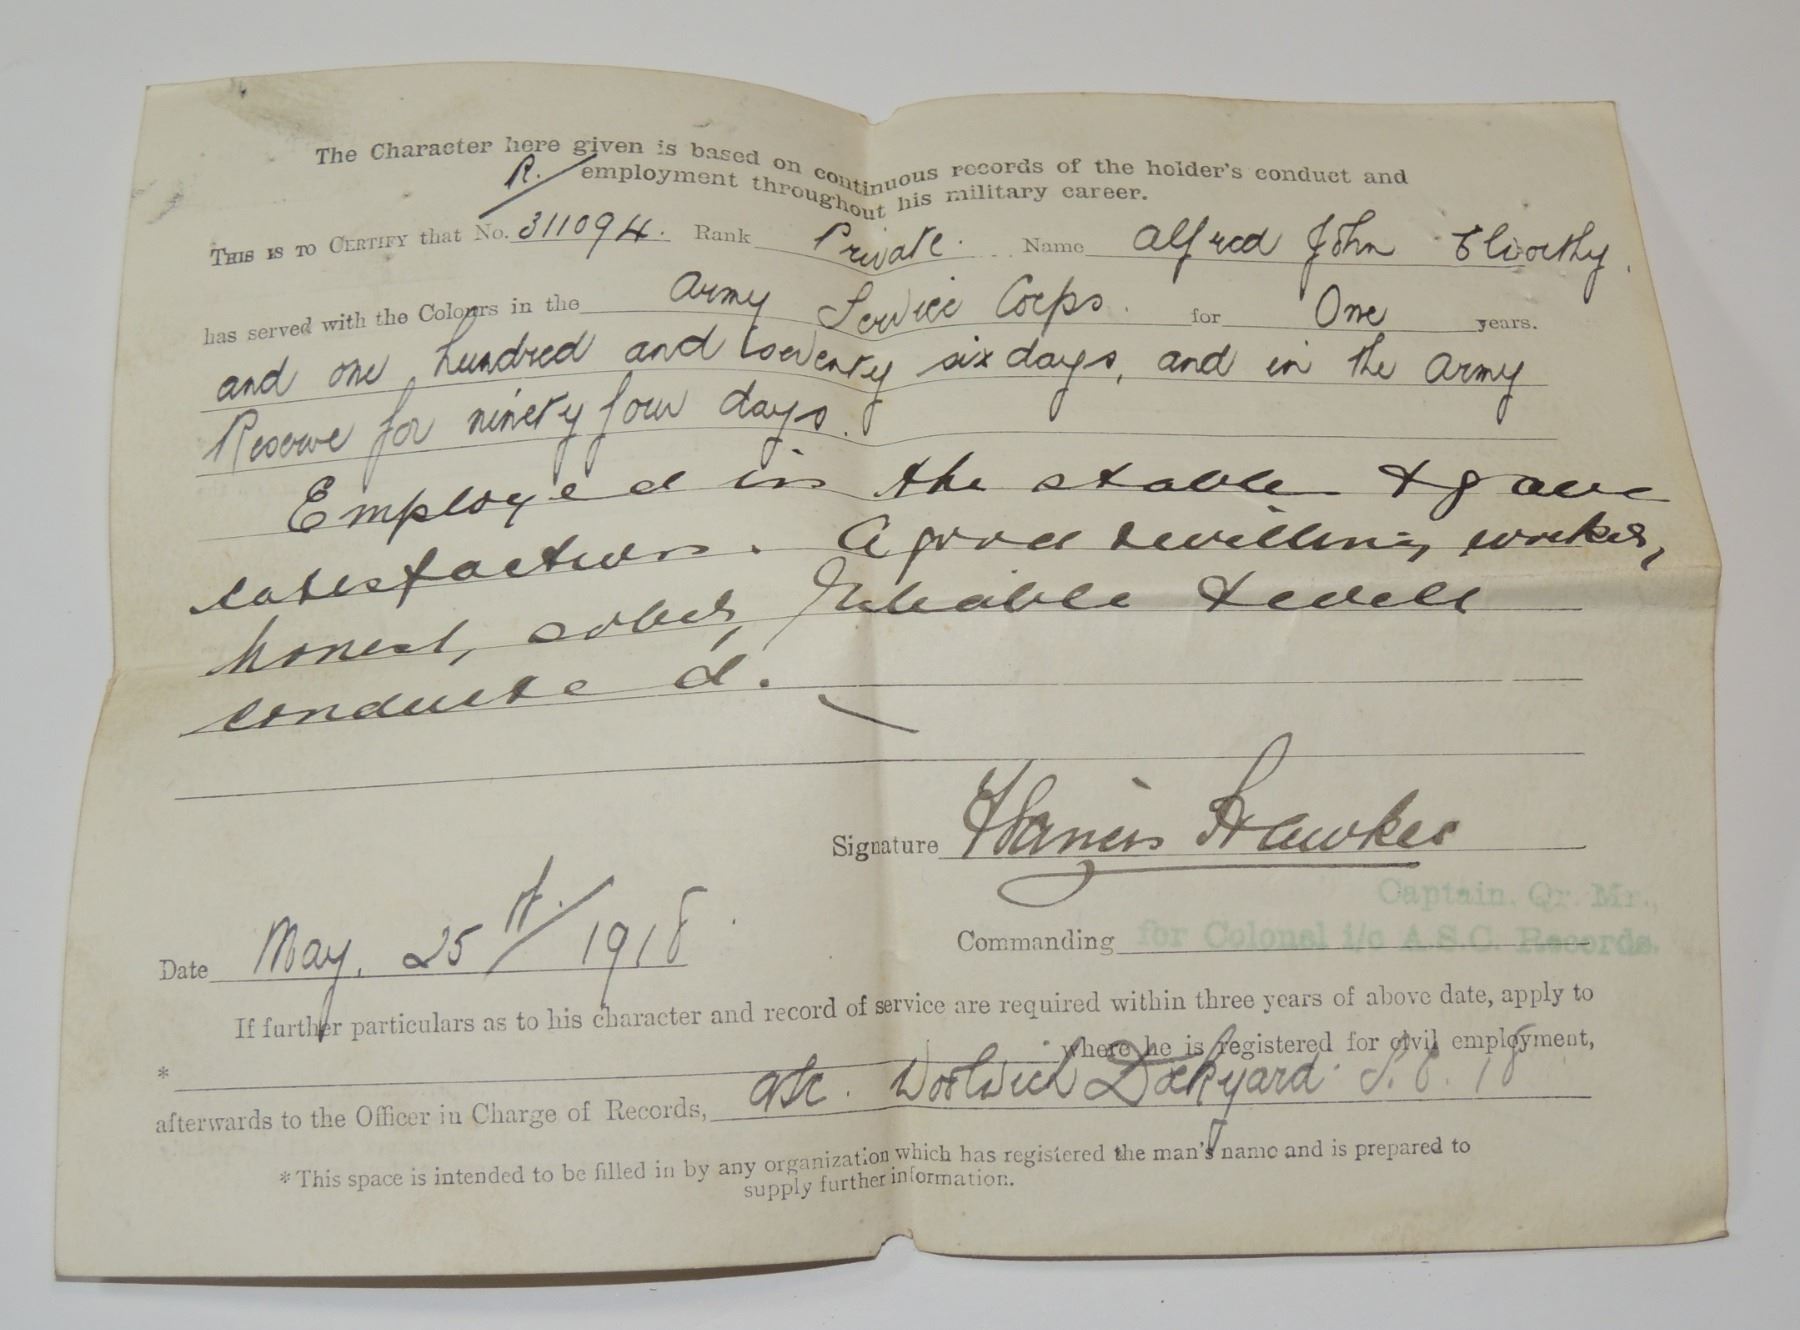 The Character here given is based on continuous records of the holder's conduct and
employment throughout his military career.
R./
THIS IS TO CERTIFY that No. 311094. Rank Private. Name Alfred John Elworthy.
has served with the Colours in the Army Service Corps. for One years.
and one hundred and twenty six days, and in the Army
Reserve for ninety four days.
Employed in the stable & gave
satisfaction. A good willing worker,
honest, sober, reliable & well
conducted.
Signature Francis Hawkes
Captain. Qr. Mr.,
Date May. 25th/1918.
Commanding for Colonel i/c A.S.C. Records.
If further particulars as to his character and record of service are required within three years of above date, apply to
* where he is registered for civil employment,
afterwards to the Officer in Charge of Records, ASC. Woolwich Dockyard. S.E. 18
* This space is intended to be filled in by any organization which has registered the man's name and is prepared to
supply further information.